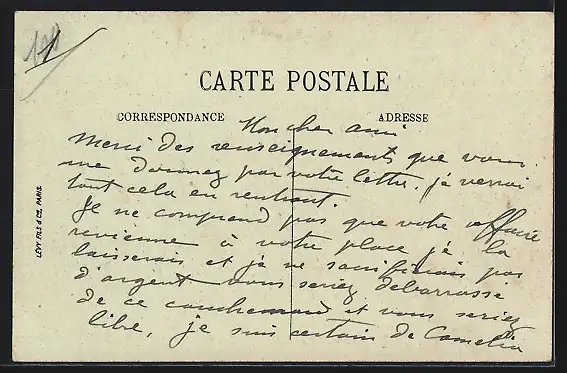 CARTE POSTALE
CORRESPONDANCE
ADRESSE
Mon cher ami
Merci des renseignements que vous
me donnez par votre lettre. je verrai
tout cela en rentrant.
Je ne comprend pas que votre affaire
revienne à votre place je la
laisserais et je ne sacrifierais pas
d'argent vous seriez débarrassé
de ce cauchemard et vous seriez
libre, je suis certain de
LÉVY FILS & CIE, PARIS